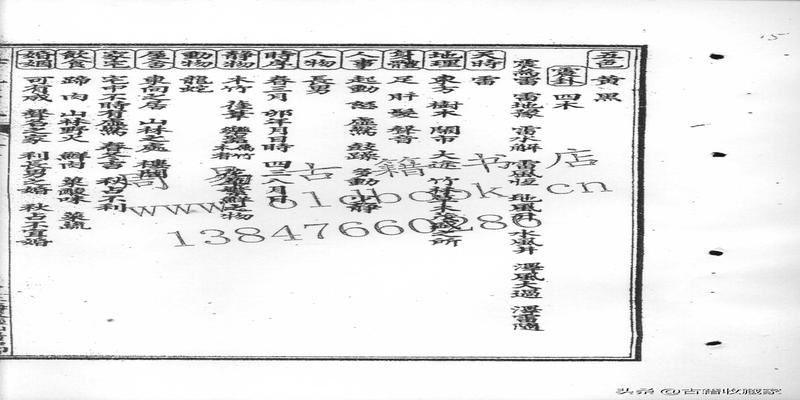 五色 黃 黑
震卦 四木
震為雷 雷地豫 雷水解 雷風恆 地風升 水風井 澤風大過 澤雷隨
天時 雷
地理 東方 樹木 鬧市 大途 竹林草木茂盛之所
身體 足 肝 髮 聲音
人事 起動 怒 虛驚 鼓躁 多動少靜
人物 長男
時序 春三月 卯年月日時 四三八月日
靜物 木竹
動物 龍蛇
屋舍 東向之居 山林之處 樓閣
家宅 宅中不時有虛驚 春冬吉 秋占不利
飲食 蹄 肉 山林野火 鮮肉 菓酸味 菜蔬
婚姻 可有成 聲名之家 利長男之婚 秋占不宜婚
古籍书店
www.oldbook.cn
13847660286
15
头条 @古籍收藏家